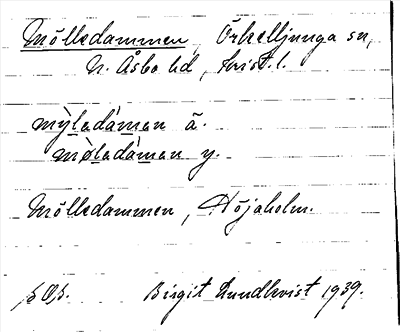 Mölledammen, Örkelljunga sn,
N. Åsbo hd, Krist. l.
mỳladáman ä.
mø̀ladáman y.
Mölledammen, Höjaholm.
Birgit Lundkvist 1939.